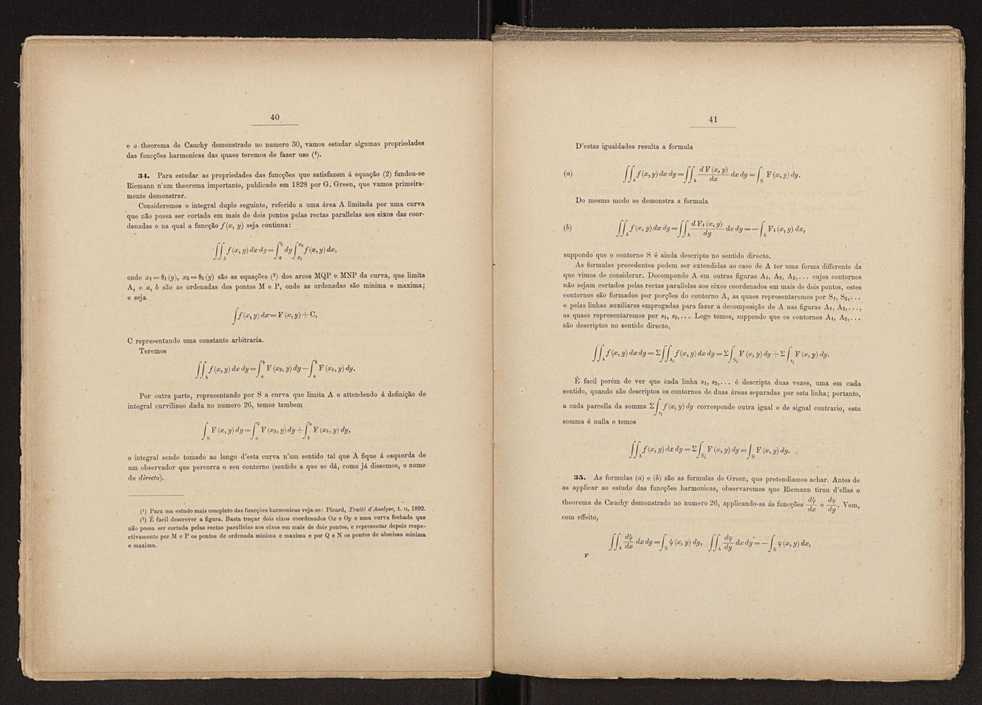 40
e o theorema de Cauchy demonstrado no numero 30, vamos estudar algumas propriedades
das funcções harmonicas das quaes teremos de fazer uso (¹).
34. Para estudar as propriedades das funcções que satisfazem á equação (2) fundou-se
Riemann n'um theorema importante, publicado em 1828 por G. Green, que vamos primeira-
mente demonstrar.
Consideremos o integral duplo seguinte, referido a uma área A limitada por uma curva
que não possa ser cortada em mais de dois pontos pelas rectas parallelas aos eixos das coor-
denadas e na qual a funcção f(x, y) seja continua:
∬_A f(x, y) dx dy = ∫_a^b dy ∫_{x₁}^{x₂} f(x, y) dx,
onde x₁ = θ₁(y), x₂ = θ₂(y) são as equações (²) dos arcos MQP e MNP da curva, que limita
A, e a, b são as ordenadas dos pontos M e P, onde as ordenadas são minima e maxima;
e seja
∫ f(x, y) dx = F(x, y) + C,
C representando uma constante arbitraria.
Teremos
∬_A f(x, y) dx dy = ∫_a^b F(x₂, y) dy − ∫_a^b F(x₁, y) dy.
Por outra parte, representando por S a curva que limita A e attendendo á definição de
integral curvilineo dada no numero 26, temos tambem
∫_S F(x, y) dy = ∫_a^b F(x₂, y) dy + ∫_b^a F(x₁, y) dy,
o integral sendo tomado ao longo d'esta curva n'um sentido tal que A fique á esquerda de
um observador que percorra o seu contorno (sentido a que se dá, como já dissemos, o nome
de directo).
(¹) Para um estudo mais completo das funcções harmonicas veja-se: Picard, Traité d'Analyse, t. II, 1892.
(²) É facil descrever a figura. Basta traçar dois eixos coordenados Ox e Oy e uma curva fechada que
não possa ser cortada pelas rectas parallelas aos eixos em mais de dois pontos, e representar depois respe-
ctivamente por M e P os pontos de ordenada minima e maxima e por Q e N os pontos de abscissa minima
e maxima.
41
D'estas igualdades resulta a formula
(a) ∬_A f(x, y) dx dy = ∬_A dF(x, y)/dx dx dy = ∫_S F(x, y) dy.
Do mesmo modo se demonstra a formula
(b) ∬_A f(x, y) dx dy = ∬_A dF₁(x, y)/dy dx dy = − ∫_S F₁(x, y) dx,
suppondo que o contorno S é ainda descripto no sentido directo.
As formulas precedentes podem ser extendidas ao caso de A ter uma fórma differente da
que vimos de considerar. Decompondo A em outras figuras A₁, A₂, A₃,... cujos contornos
não sejam cortados pelas rectas parallelas aos eixos coordenados em mais de dois pontos, estes
contornos são formados por porções do contorno A, as quaes representaremos por S₁, S₂,...
e pelas linhas auxiliares empregadas para fazer a decomposição de A nas figuras A₁, A₂,...,
as quaes representaremos por s₁, s₂,... Logo temos, suppondo que os contornos A₁, A₂,...
são descriptos no sentido directo,
∬_A f(x, y) dx dy = Σ∬_{A_i} f(x, y) dx dy = Σ∫_{S_i} F(x, y) dy + Σ∫_{s_i} F(x, y) dy.
É facil porém de ver que cada linha s₁, s₂,... é descripta duas vezes, uma em cada
sentido, quando são descriptos os contornos de duas áreas separadas por esta linha; portanto,
a cada parcella da somma Σ∫_{s_i} f(x, y) dy corresponde outra igual e de signal contrario, esta
somma é nulla e temos
∬_A f(x, y) dx dy = Σ∫_{S_i} F(x, y) dy = ∫_S F(x, y) dy.
35. As formulas (a) e (b) são as formulas de Green, que pretendiamos achar. Antes de
as applicar ao estudo das funcções harmonicas, observaremos que Riemann tirou d'ellas o
theorema de Cauchy demonstrado no numero 26, applicando-as ás funcções dψ/dx e dφ/dy. Vem,
com effeito,
∬_A dψ/dx dx dy = ∫_S ψ(x, y) dy, ∬_A dφ/dy dx dy = − ∫_S φ(x, y) dx,
F